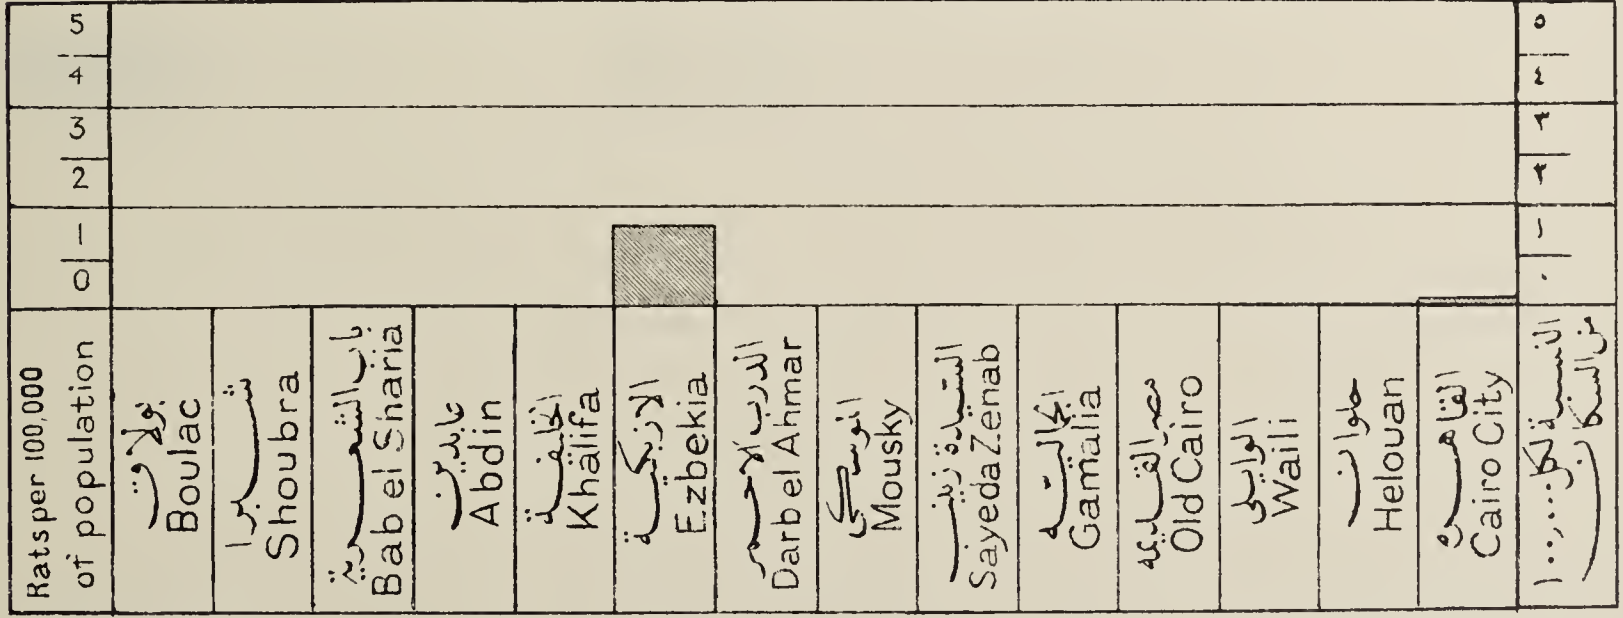 5
4
3
2
1
0
٥
٤
٣
٢
١
٠
Rats per 100,000
of population
بولاق
Boulac
شبرا
Shoubra
باب الشعرية
Bab el Sharia
عابدين
Abdin
الخليفة
Khalifa
الازبكية
Ezbekia
الدرب الاحمر
Darb el Ahmar
الموسكى
Mousky
السيدة زينب
Sayeda Zenab
الجمالية
Gamalia
مصر القديمة
Old Cairo
الوايلى
Waili
حلوان
Helouan
القاهرة
Cairo City
النسبة لكل ١٠٠٠٠٠
من السكان